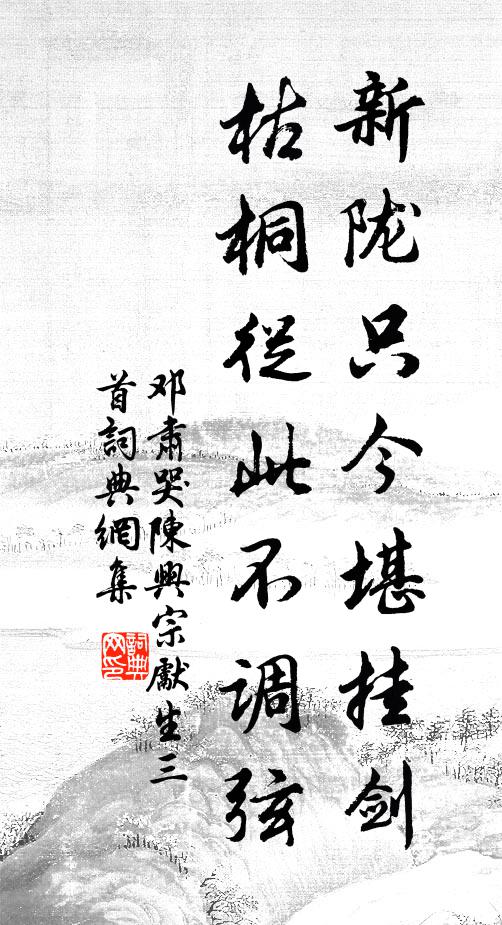 新陇只今堪挂剑
枯桐從此不调弦
邓肅哭陳興宗獻生三
首詞典網集
詞典
网印